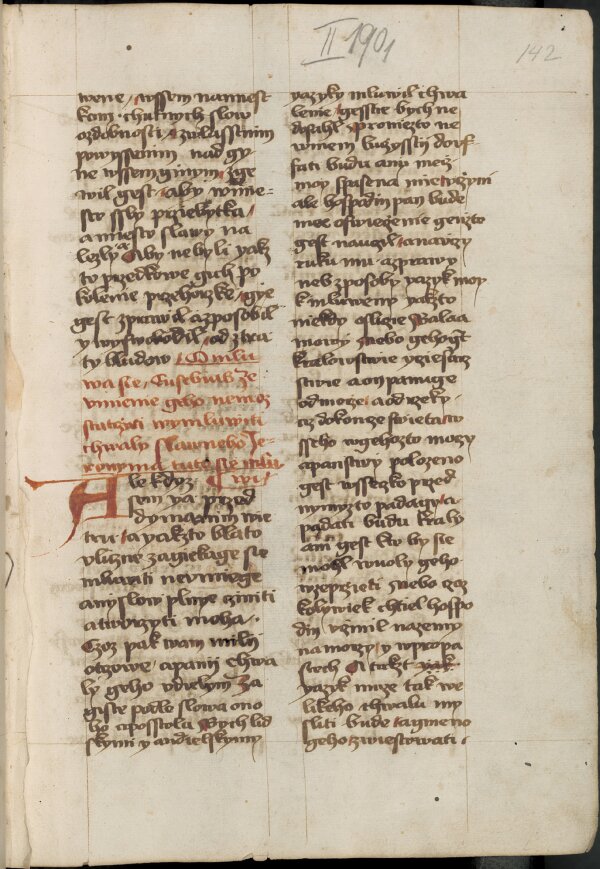 II 1901
142
wene / wssem namiest
kom · chutnych slow
ozdobnosti / zwlasstnim
powyssenim nad gy
ne wssem ginym / zge
wil gest / aby w mie
sto ssly prziebytka /
a miesto slawy na
lezly Aby nebyli yak
to przedkowe gich po
kolenie przehorzke / gye
gest zprawil a zposobil
y wyswobodil / od ztra
ty bludow /
wa sie / Eusebius ze
vmienie geho nemoz
stacziti wymluwiti
chwaly slawneho Je
ronyma tuto sie mlu
wi /
Ale kdyz
sem ya przed
dymanim wie
tru / a yakzto blato
vliczne zagiekage sie
mluwiti nevmiege
any slow plnye cziniti
a tworzyti moha /
Czoz pak wam milij
otczowe / a panij chwa
ly geho vdielym Za
giste podlo slowa ono
ho apposstola Bych lid
skymi y andielskymy
yazyky mluwil chwa
lenie / gesstie bych ne
dosahl Proniezto ne
vmiem kuzyssij dorf
fati budu any mez
moy spasena
ale hospodin pan bude
moe oswiezenie genzto
gest nauczil / a na
ruku mu a zprawy
neb zposoby yazyk moy
k mluweny yakzto
niekdy oslicie Balaa
mowy Nebo gehozt
kralowstwie
stwie a on panuge
od morze / a od rzeky /
az dokonze swieta w
sseho w gehozto moczy
a panstwy polozeno
gest wsseczko przed
nymzto padagy / a
padati budu kraly
ani gest kto by sie
mohl wuoly geho
wzeprzieti Nebo czoz
kolywiek chtiel hospo
din vczinil na zemy
na morzy / y w propa
stech A takzt yak
yazyk muze tak we
likeho chwalu my
sliti bude / a gmeno
geho zwiestowati /